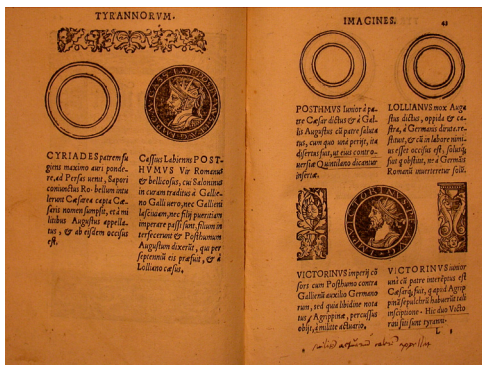 TYRANNORVM.
CYRIADES patrem fu
giens maximo auri ponde-
re, ad Persas uenit, Sapori
coniunctus Ro. bellum intu
lerunt Cæsarea capta Cæ-
saris nomen sumpsit, et à mi
litibus Augustus appella-
tus, & ab eisdem occisus
est.
Cassius Labienus POST-
HVMVS Vir Romanus
& bellicosus, cui Saloninus
in curam traditus à Gallie
no Galli uero, nec Gallieni
lasciuam, nec filij pueritiam
imperare passi sunt, filium in
terfecerunt & Posthumum
Augustum dixerūt, qui per
septennium eis præfuit, & à
Lolliano cæsus.
IMAGINES.
POSTHMVS Iunior à pa-
tre Cæsar dictus & à Gal-
lis Augustus cū patre saluta
tus, cum quo una perijt, ita
disertus fuit, ut eius contro-
uersiæ Quintiliano dicantur
insertæ.
LOLLIANVS mox Augu
stus dictus, oppida & ca-
stra, à Germanis diruta re-
stituit, & cū in labore nimi-
us esset occisus est, solusq;
fuit obstitit, ne à Germanis
Romani interirentur soliti.
VICTORINVS imperij cō
sors cum Posthumo contra
Gallienū auxilio Germano
rum, sed quia libidine nota
tus, Agrippinæ, percussus
obijt, à milite actuario.
VICTORINVS iunior
unà cū patre interēptus est
Cæsarq; fuit, & apud Agrip
pinā sepulchrū habuerūt tali
inscriptione. Hic duo Victo
rini siti sunt tyranni.